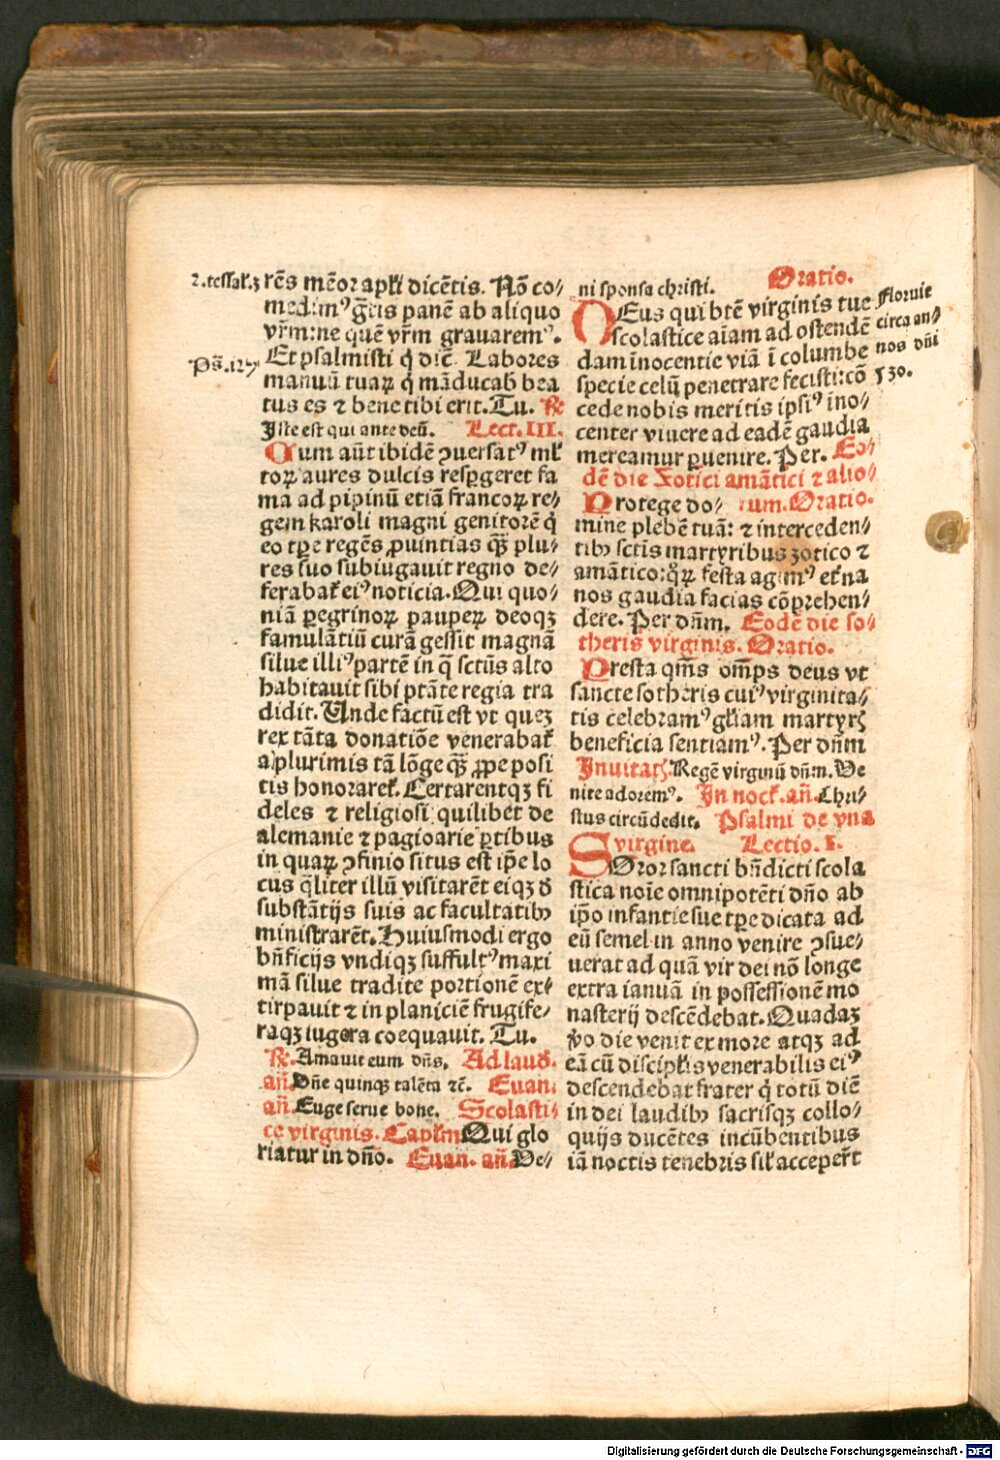 2.tessal.3 rēs mēor apl̄i dicētis. Nō co⸗
medim⁹ gr̄tis panē ab aliquo
vr̄m:ne quē vr̄m grauarem⁹.
Ps̄.127 Et psalmisti q̇ diē. Labores
manuū tuaꝝ q̇ māducab̄ bea
tus es ⁊ bene tibi erit. Tu. ℟
Iste est qui ante deū. Lect. III.
Cum aūt ibidē ꝯuersat⁹ ml̄
toꝝ aures dulcis resꝑgeret fa
ma ad pipinū etiā francoꝝ re⸗
gem karoli magni genitorē q̇
eo tꝑe regēs ꝓuintias qꝫ̄ plu⸗
res suo subiugauit regno de⸗
ferabat̄ ei⁹ noticia. Qui quo⸗
niā ꝑegrinoꝝ pauꝑeꝝ deoqꝫ
famulātiū curā gessit magnā
silue illi⁹ partē in q̄ sctūs alto
habitauit sibi ptāte regia tra
didit. Unde factū est vt queꝫ
rex tāta donatiōe venerabat̄
a plurimis tā lōge qꝫ̄ ꝓpe posi
tis honoraret̄. Certarentqꝫ fi
deles ⁊ religiosi quilibet de
alemanie ⁊ pagioarie ꝑtibus
in quaꝝ ꝯfinio situs est ip̄e lo
cus q̄liter illū visitarēt eiqꝫ d̄
substātijs suis ac facultatibꝫ
ministrarēt. Huiusmodi ergo
bn̄ficijs vndiqꝫ suffult⁹ maxi
mā silue tradite portionē ex⸗
tirpauit ⁊ in planiciē frugife⸗
raqꝫ iugera coequauit. Tu.
℟. Amauit eum dn̄s. Ad laud̄.
an̄. Dn̄e quinqꝫ talēta ⁊ē. Euan.
an̄. Euge serue bone. Scolasti⸗
ce virginis. Capl̄m Qui glo
riatur in dn̄o. Euan. an̄. Ve⸗
ni sponsa christi. Oratio.
Deus qui btē virginis tue
scolastice aīam ad ostendē
dam īnocentie viā ī columbe
specie celū penetrare fecisti:cō
Floruit
circa an⸗
nos dn̄i
530.
cede nobis meritis ipsi⁹ ino⸗
center viuere ad eadē gaudia
mereamur ꝑuenire. Per. Eo⸗
dē die Zotici amātici ⁊ alio⸗
Protege do⸗ rum. Oratio.
mine plebē tuā: ⁊ interceden⸗
tibꝫ sctīs martyribus zotico ⁊
amātico:qͦꝝ festa agim⁹ et̄na
nos gaudia facias cōprehen⸗
dere. Per dn̄m. Eodē die so⸗
theris virginis. Oratio.
Presta qm̄s om̄ps deus vt
sancte sotheris cui⁹ virginita⸗
tis celebram⁹ gl̄iam martyrꝭ
beneficia sentiam⁹. Per dn̄m
Inuitatꝭ. Regē virginū dn̄m. Ve
nite adorem⁹. In noct̄. an̄. Chri⸗
stus circūdedit. Psalmi de vna
virgine. Lectio. I.
Soror sancti bn̄dicti scola
stica noīe omnipotēti dn̄o ab
ip̄o infantie sue tꝑe dicata ad
eū semel in anno venire ꝯsue⸗
uerat ad quā vir dei nō longe
extra ianuā in possessionē mo
nasterij descēdebat. Quadaꝫ
v̊o die venit ex more atqꝫ ad
eā cū discipl̄is venerabilis ei⁹
descendebat frater q̇ totū diē
in dei laudibꝫ sacrisqꝫ collo⸗
quijs ducētes incūbentibus
iā noctis tenebris sil̄ acceper̄t
Digitalisierung gefördert durch die Deutsche Forschungsgemeinschaft - DFG